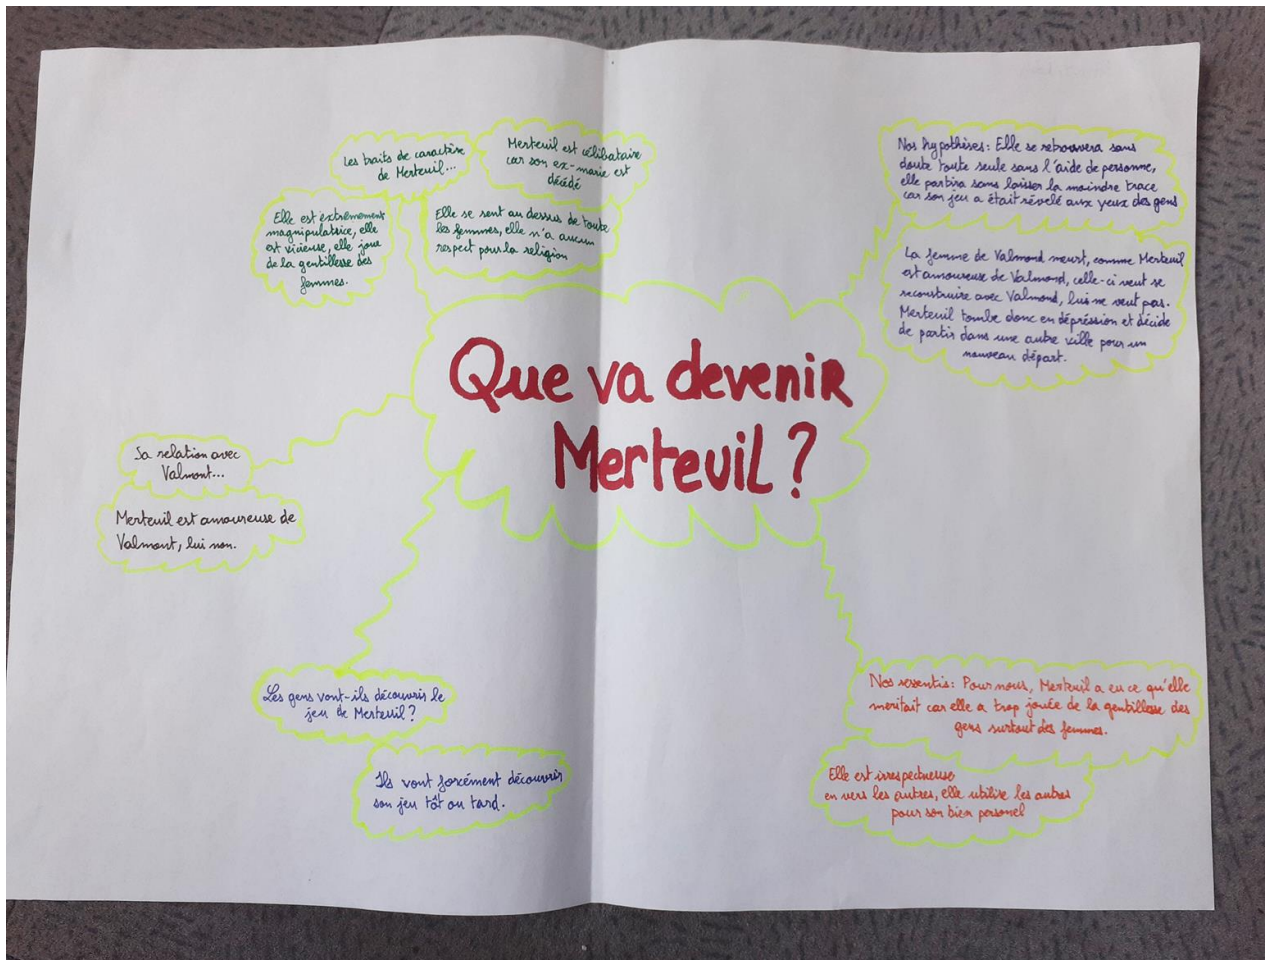 Les traits de caractère
de Merteuil...
Merteuil est célibataire
car son ex-marie est
décédé
Elle est extrêmement
magnipulatrice, elle
est vicieuse, elle joue
de la gentillesse des
femmes.
Elle se sent au dessus de toute
les femmes, elle n'a aucun
respect pour la religion
Nos hypothèses: Elle se retrouvera sans
doute toute seule sans l'aide de personne,
elle partira sans laisser la moindre trace
car son jeu a était révélé aux yeux des gens
La femme de Valmond meurt, comme Merteuil
est amoureuse de Valmond, celle-ci veut se
reconstruire avec Valmond, lui ne veut pas.
Merteuil tombe donc en dépréssion et décide
de partir dans une autre ville pour un
nouveau départ.
Que va devenir
Merteuil ?
Sa relation avec
Valmont...
Merteuil est amoureuse de
Valmont, lui non.
Les gens vont-ils découvrir le
jeu de Merteuil ?
Ils vont forcément découvrir
son jeu tôt ou tard.
Nos ressentis: Pour nous, Merteuil a eu ce qu'elle
meritait car elle a trop jouée de la gentillesse des
gens surtout des femmes.
Elle est irrespectueuse
en vers les autres, elle utilise les autres
pour son bien personel